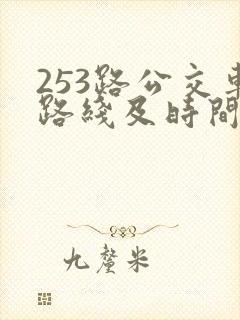 253路公交車
路綫及時間
九釐米